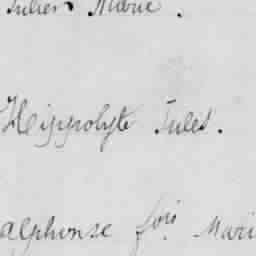 Julien Marie.
Hippolyte Jules.
alphonse fois Mari